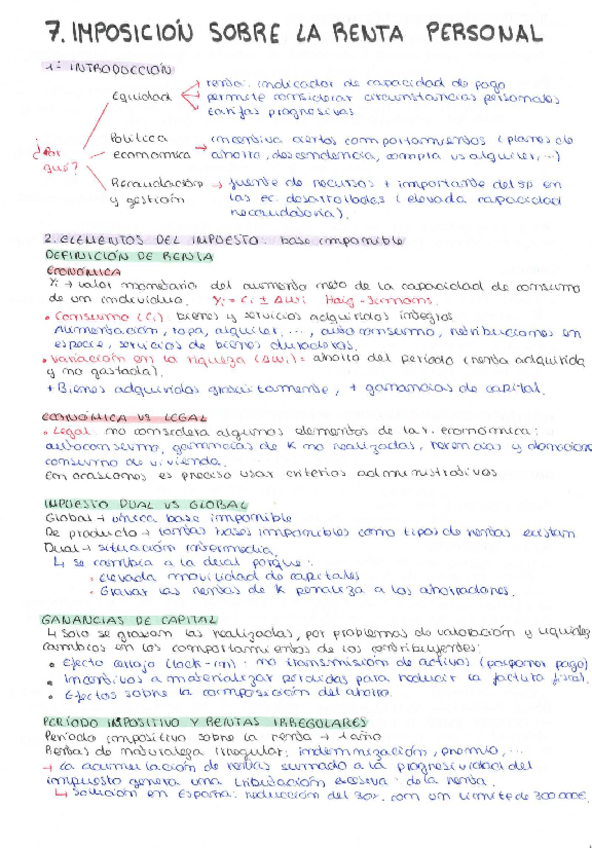 7. IMPOSICIÓN SOBRE LA RENTA PERSONAL
1: INTRODUCCIÓN
¿Por qué?
Equidad → renta: indicador de capacidad de pago
permite considerar circunstancias personales
tarifas progresivas
Política económica → incentiva ciertos comportamientos (planes de
ahorro, descendencia, compra vs alquiler, ...)
Recaudación y gestión → fuente de recursos + importante del SP en
las ec. desarrolladas (elevada capacidad
recaudatoria).
2. ELEMENTOS DEL IMPUESTO: base imponible
DEFINICIÓN DE RENTA
ECONÓMICA
Yi → valor monetario del aumento neto de la capacidad de consumo
de un individuo. Yi = Ci ± ΔWi Haig-Simons.
• Consumo (Ci) bienes y servicios adquiridos íntegros
Alimentación, ropa, alquiler, ..., autoconsumo, retribuciones en
especie, servicios de bienes duraderos.
• Variación en la riqueza (ΔWi) = ahorro del período (renta adquirida
y no gastada).
+ Bienes adquiridos gratuitamente, + ganancias de capital.
ECONÓMICA VS LEGAL
• Legal no considera algunos elementos de la r. económica:
autoconsumo, ganancias de K no realizadas, herencias y donaciones
consumo de vivienda.
En ocasiones es preciso usar criterios administrativos
IMPUESTO DUAL VS GLOBAL
Global → única base imponible
De producto → tantas bases imponibles como tipos de rentas existan
Dual → situación intermedia.
↳ se cambia a la dual porque:
• elevada movilidad de capitales
• Gravar las rentas de K penaliza a los ahorradores.
GANANCIAS DE CAPITAL
↳ Solo se gravan las realizadas, por problemas de valoración y liquidez
cambios en los comportamientos de los contribuyentes:
• Efecto cerrojo (lock-in): no transmisión de activos (posponer pago)
• Incentivos a materializar pérdidas para reducir la factura fiscal.
• Efectos sobre la composición del ahorro.
PERÍODO IMPOSITIVO Y RENTAS IRREGULARES
Período impositivo sobre la renta → 1 año
Rentas de naturaleza irregular: indemnización, premio, ...
→ la acumulación de rentas sumado a la progresividad del
impuesto genera una tributación excesiva de la renta.
↳ Solución en España: reducción del 30%. con un límite de 300.000€.